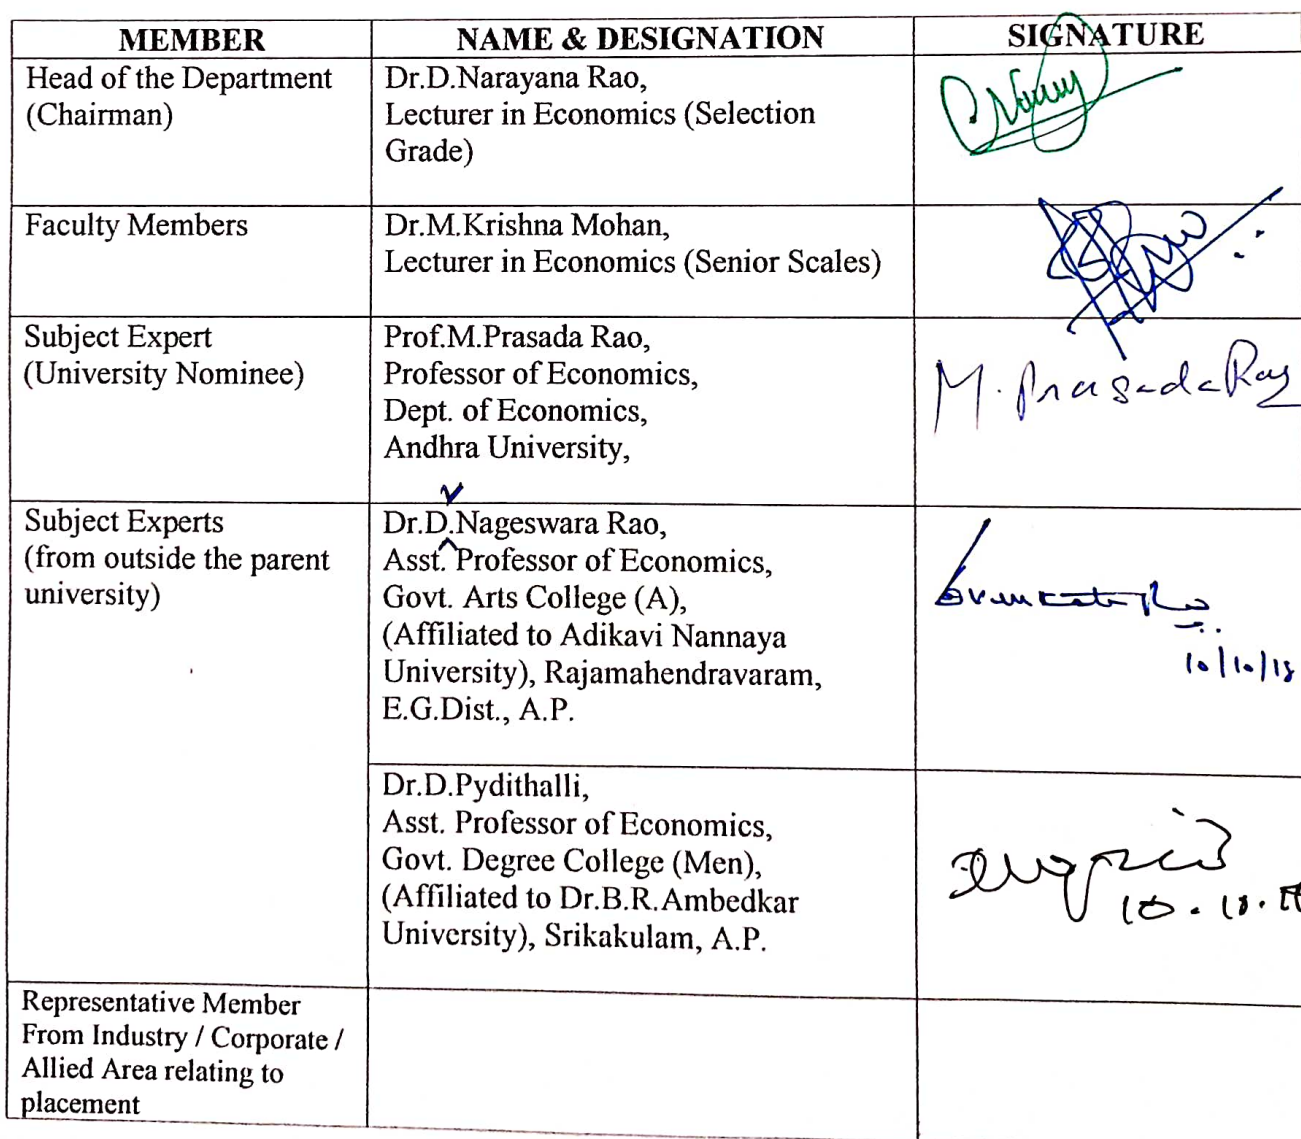 MEMBER NAME & DESIGNATION SIGNATURE
Head of the Department
(Chairman)
Dr.D.Narayana Rao,
Lecturer in Economics (Selection
Grade)
Faculty Members
Dr.M.Krishna Mohan,
Lecturer in Economics (Senior Scales)
Subject Expert
(University Nominee)
Prof.M.Prasada Rao,
Professor of Economics,
Dept. of Economics,
Andhra University,
M. Prasada Rao
Subject Experts
(from outside the parent
university)
V
Dr.D.Nageswara Rao,
Asst. Professor of Economics,
Govt. Arts College (A),
(Affiliated to Adikavi Nannaya
University), Rajamahendravaram,
E.G.Dist., A.P.
10/10/18
Dr.D.Pydithalli,
Asst. Professor of Economics,
Govt. Degree College (Men),
(Affiliated to Dr.B.R.Ambedkar
University), Srikakulam, A.P.
Representative Member
From Industry / Corporate /
Allied Area relating to
placement